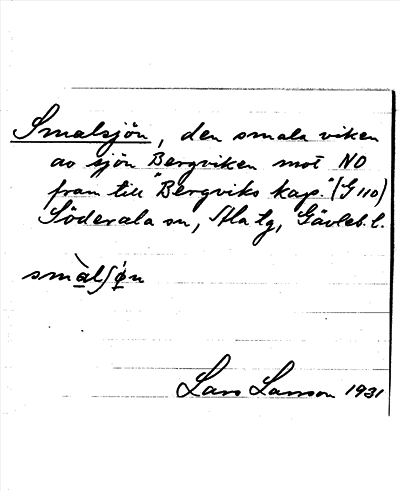 Smalsjön, den smala viken
av sjön Bergviken mot NO
fram till "Bergviks kap." (G 110)
Söderala sn, Ala tg, Gävleb. l.
smàlʃǿn
Lars Larsson 1931